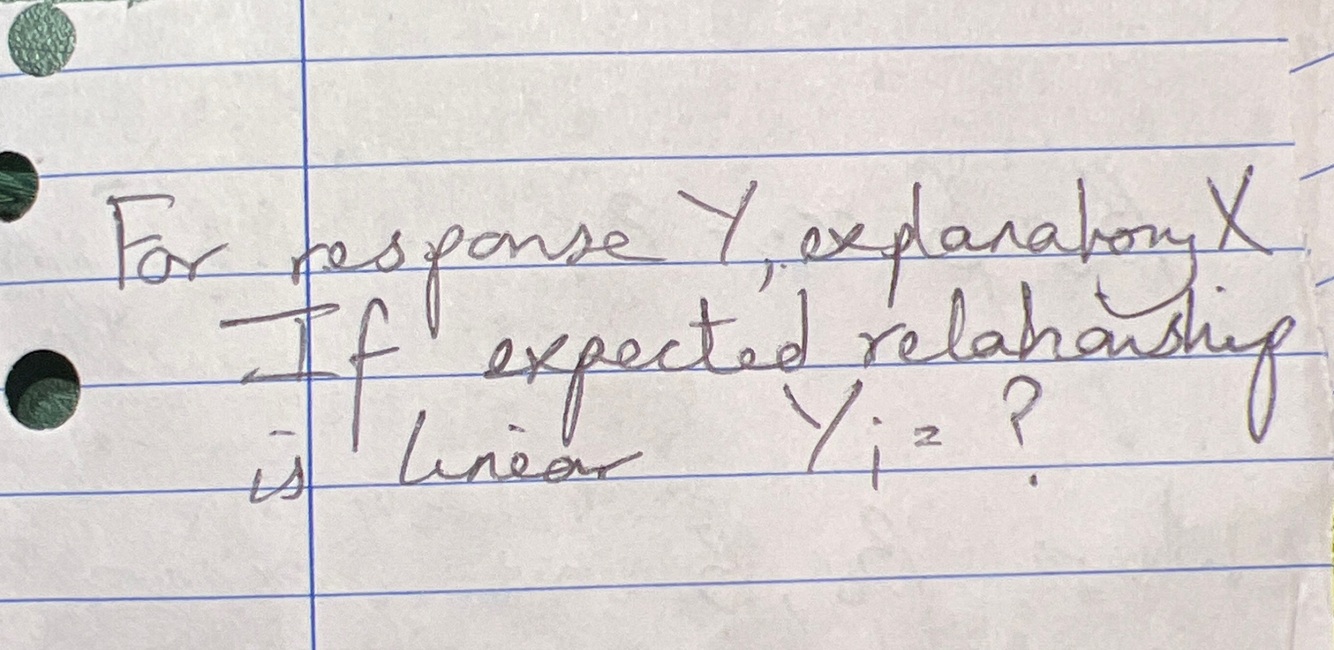 For response Y, explanatory X
If expected relationship
is linear Yi = ?